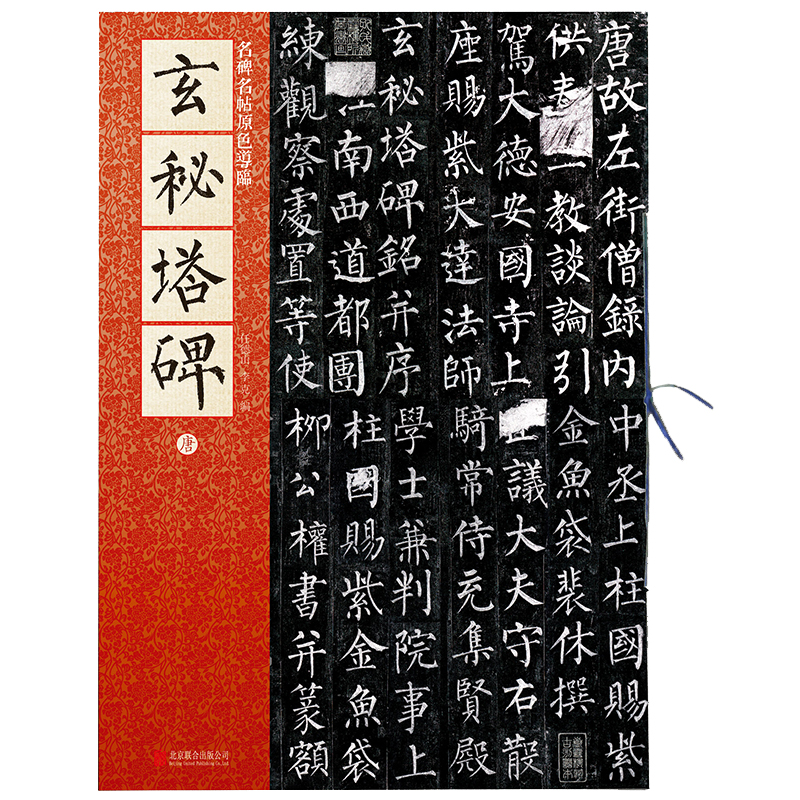 玄秘塔碑
名碑名帖原色導臨
唐
北京联合出版公司
Beijing United Publishing Co.,Ltd.
唐故左街僧錄內
供奉教談論引
駕大德安國寺上
座賜紫大達法師
玄秘塔碑銘并序
江南西道都團
練觀察處置等使
中丞上柱國賜紫
金魚袋裴休撰
正議大夫守右散
騎常侍充集賢殿
學士兼判院事上
柱國賜紫金魚袋
柳公權書并篆額